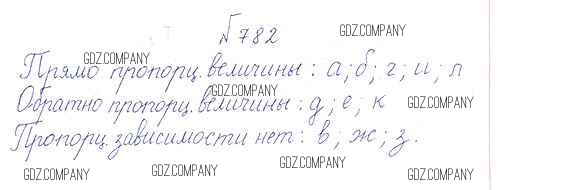 №782
Прямо пропорц. величины: а; б; г; и; л
Обратно пропорц. величины: д; е; к
Пропорц. зависимости нет: в; ж; з.
GDZ.COMPANY
GDZ.COMPANY
GDZ.COMPANY
GDZ.COMPANY
GDZ.COMPANY
GDZ.COMPANY
GDZ.COMPANY
GDZ.COMPANY